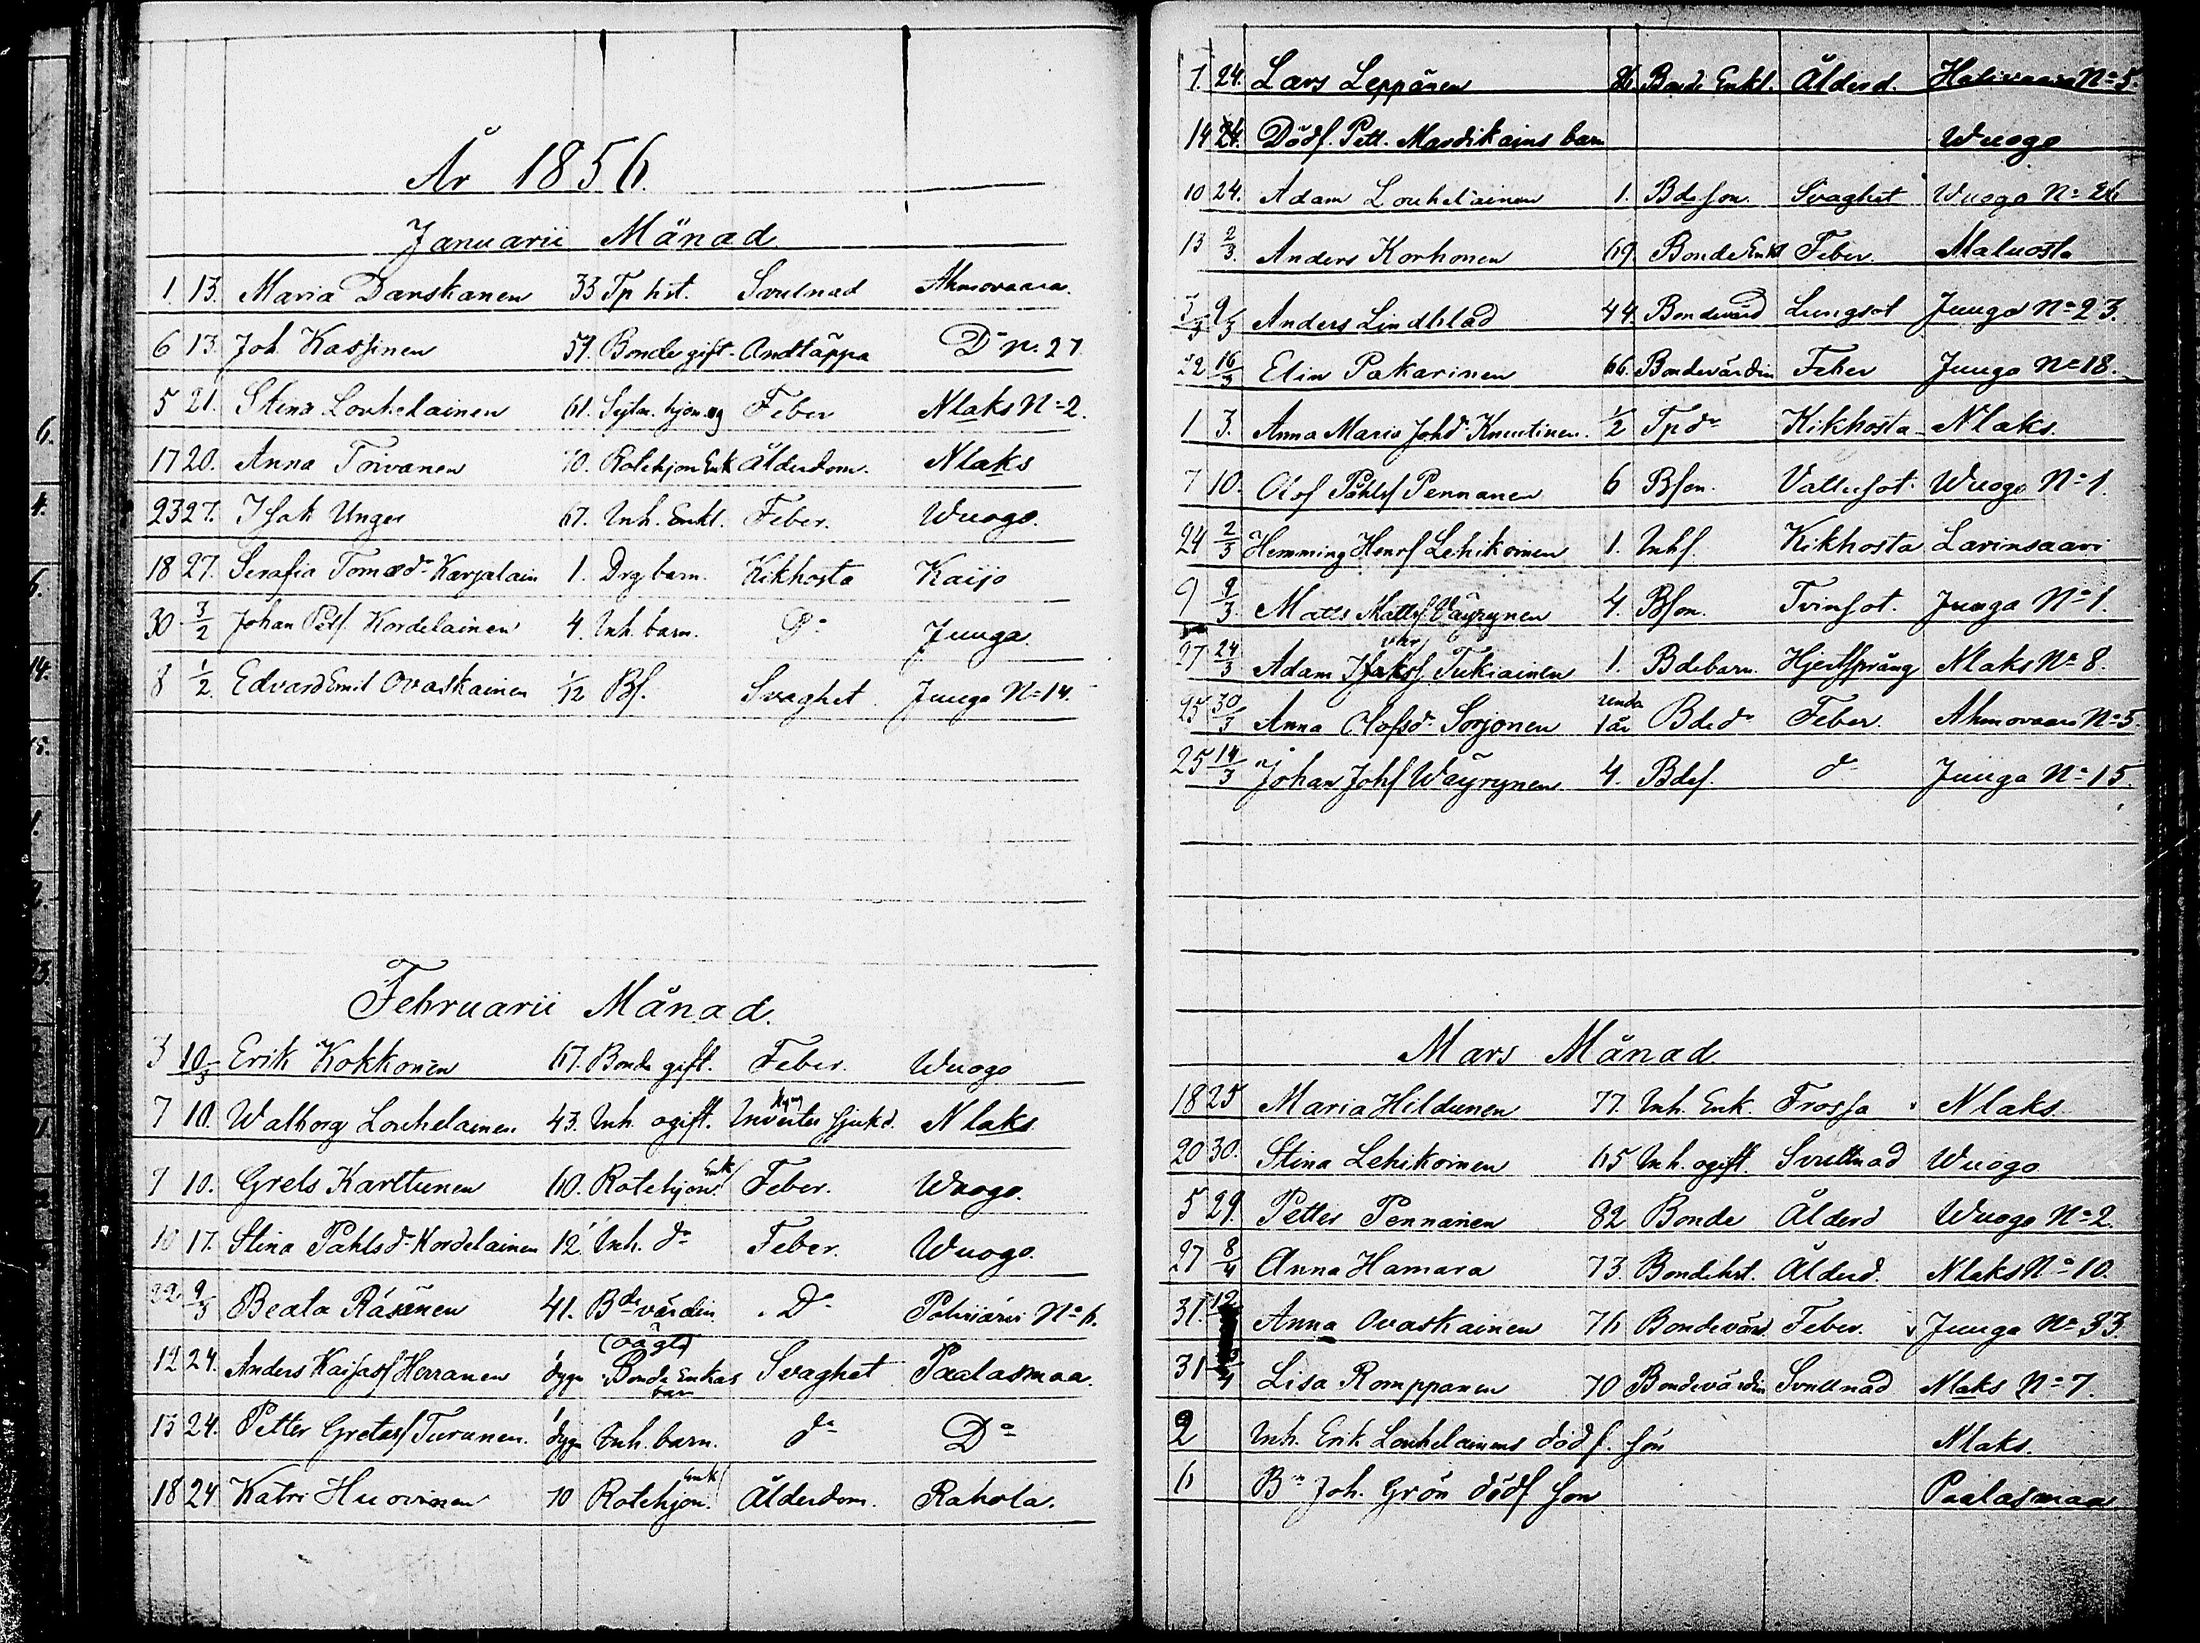 År 1856.
Januarii Månad
1. 13. Maria Danskanen 33 Tp hst. Svulnad Ahmovaara.
6 13. Joh. Kassinen 51. Bonde gift. Andtäppa D⁰ N. 27.
5 21. Stina Louhelainen 61. Feber Nlaks N⁰ 2.
17 20. Anna Toivanen 70. Rotehjon Enk Ålderdom. Nlaks
23 27. Isak Unger 67. Inh. Enkl. Feber. Wuogo.
18 27. Serafia Tomæd⁰ Karjalain 1. Drg barn. Kikhosta Kaijo
30 3/2 Johan Petf. Kordelainen 4. Inh. barn. D⁰ Juuga.
8 1/2. Edvard Emil Ovaskainen 1/12 Bf. Svaghet. Juuga N⁰ 14.
Februarii Månad.
3 10/3 Erik Kokkonen 67. Bonde gift. Feber. Wuogo
7 10. Walborg Louhelainen 43. Inh. ogift. sjukd. Nlaks
7 10. Greta Karttunen 60. Rotehjon Enk Feber. Wuogo.
10 17. Stina Påhlsd⁰ Kordelainen 12. Inh. d⁰ Feber. Wuogo.
22. 9/3 Beata Räsänen 41. Bde värdin D⁰ Polvijärvi N⁰ 6.
12 24. Anders Kaisasf Herranen 1 dygn (oägt) Bonde Enkas barn Svaghet Paalasmaa.
13 24. Petter Gretasf Turunen. 1 dygn Inh. barn. d⁰ D⁰
18 24 Katri Huovinen 70 Rotehjon. Enk Ålderdom. Rahola.
1. 24. Lars Leppänen 86. Bonde Enkl. Ålderd. Halivaara N⁰ 5.
14 24. Dödf. Pett. Mardikains barn Wuogo
10 24. Adam Louhelainen 1. Bde son. Svaghet Wuogo N⁰ 26
13 2/3. Anders Korhonen 69. Bonde Enkl Feber. Maluosta
3/3 9/3 Anders Lindblad 44. Bondevärd Lungsot Juuga N⁰ 23.
22 16/3 Elin Pakarinen 66. Bondevärdin Feber Juuga N⁰ 18.
1 3. Anna Maria Johd⁰ Knuutinen. 1/2 Tp d⁰ Kikhosta Nlaks.
7 10. Olof Påhlsf Pennanen 6 Bson. Vattusot. Wuogo N⁰ 1.
24 2/3 Hemming Henrsf Lehikoinen 1. Inhf. Kikhosta Larinsaari
9 9/3. Matts Mattsf Väyrynen 4. Bson. Tvinsot. Juuga N⁰ 1.
27 24/3 Adam Isaksf Tukiainen 1. Bdebarn. Hjertsprång Nlaks N⁰ 8.
25 30/3 Anna Olofsd⁰ Sorjonen unda 1 år Bde d⁰ Feber. Ahmovaara N⁰ 5.
25 14/3 Johan Johsf Wäyrynen 4. Bdef. d⁰ Juuga N⁰ 15.
Mars Månad
18 25 Maria Hildunen 77. Inh. Enk. Frossa Nlaks.
20 30. Stina Lehikoinen 65 Inh. ogift. Svullnad Wuogo
5 29. Petter Pennanen 82 Bonde Ålderd Wuogo N⁰ 2.
27 8/4 Anna Hamara 73. Bondehst. Ålderd. Nlaks N⁰ 10.
31. 12 Anna Ovaskainen 76 Bondevärd. Feber. Juuga N⁰ 33.
31 Lisa Romppanen 70 Bondevärdin Svullnad Nlaks N⁰ 7.
2 Inh. Erik Louhelainens dödf. son Nlaks.
6 Bn Joh. Grön dödf son Paalasmaa